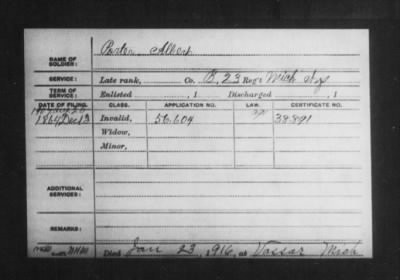 NAME OF SOLDIER: Porter Albert
SERVICE: Late rank, Co. B, 23 Reg't Mich Inf
TERM OF SERVICE: Enlisted , 1 Discharged , 1
DATE OF FILING. CLASS. APPLICATION NO. LAW. CERTIFICATE NO.
1864 Dec 13 Invalid, 56.604 38.891
Widow,
Minor,
ADDITIONAL SERVICES:
REMARKS:
Died Jan 23, 1916, at Vassar Mich